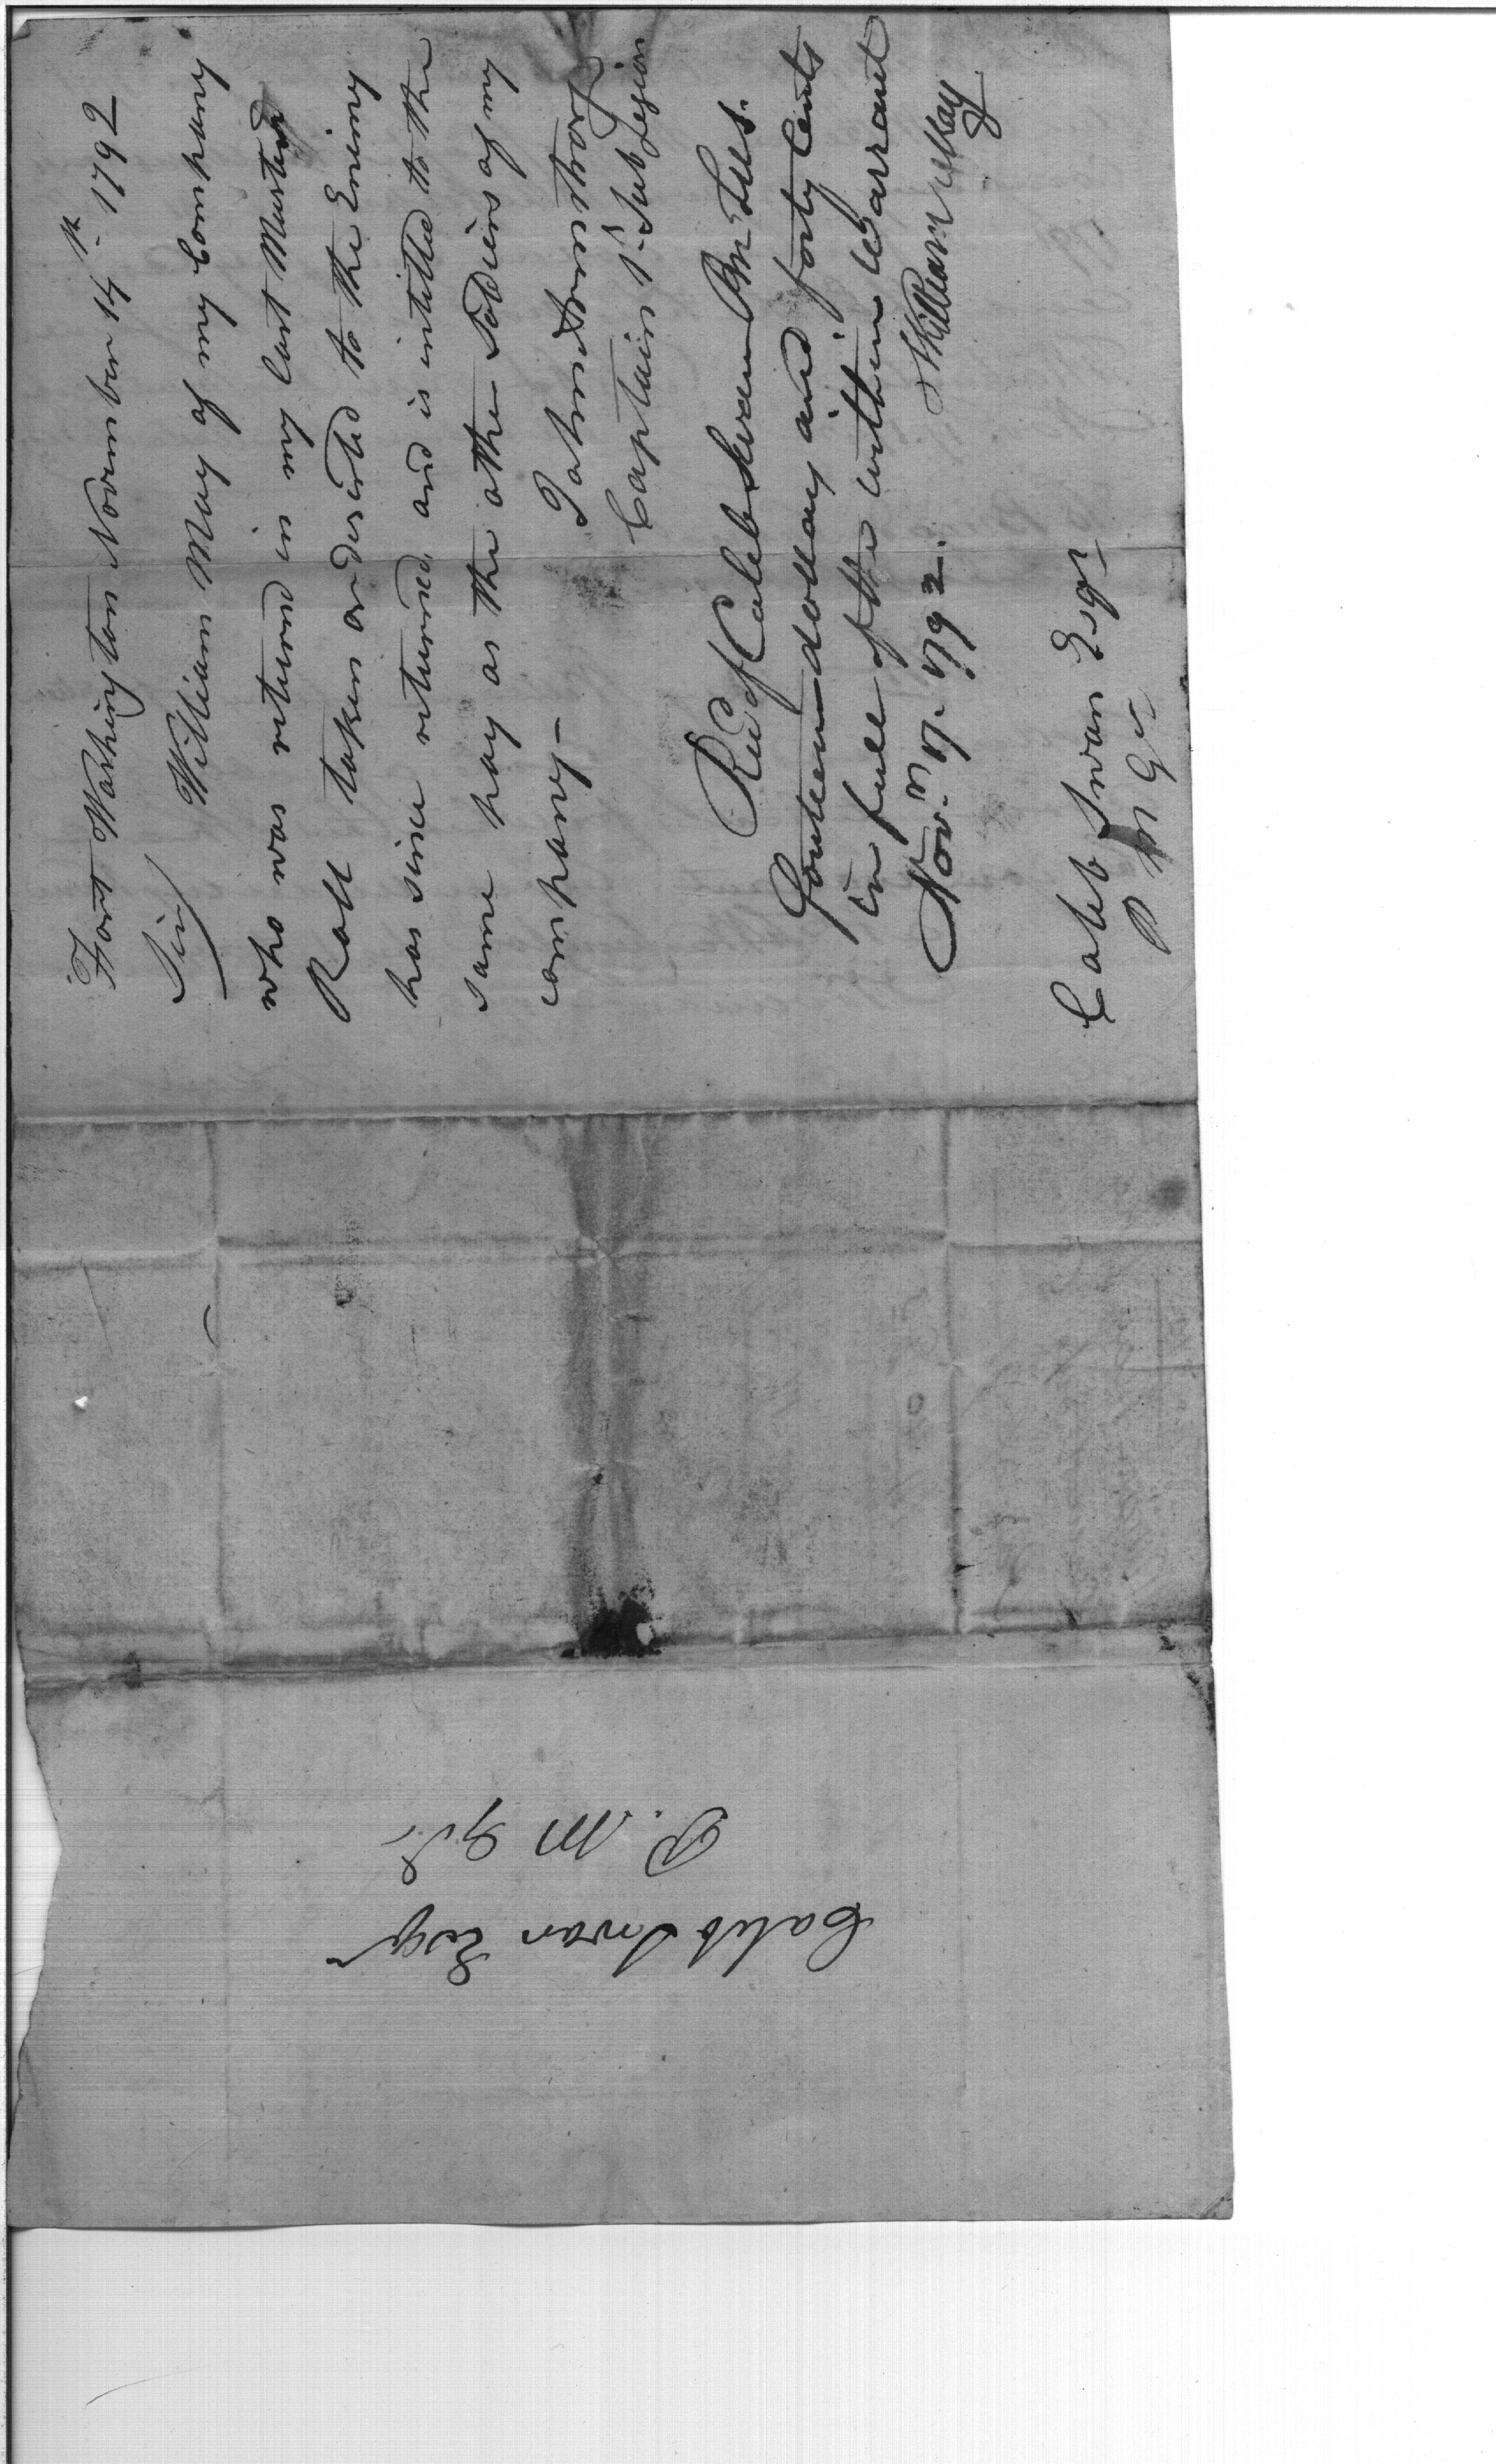 Fort Washington November 14th 1792
Sir/
William May of my Company
who was returned in my last Muster
Roll taken or deserted to the Enimy
has since returned, and is intitled to the
same pay as the other Soldiers of my
company —
John Armstrong
Captain 1st Sub Legion
Recd of Caleb Swan P.M. to U.S.
fourteen dollars and forty Cents
in full of the within Warrant
Novr. 17. 1792.
William May
Caleb Swan Esqr
P M Gl
Caleb Swan Esqr
P. M Gl